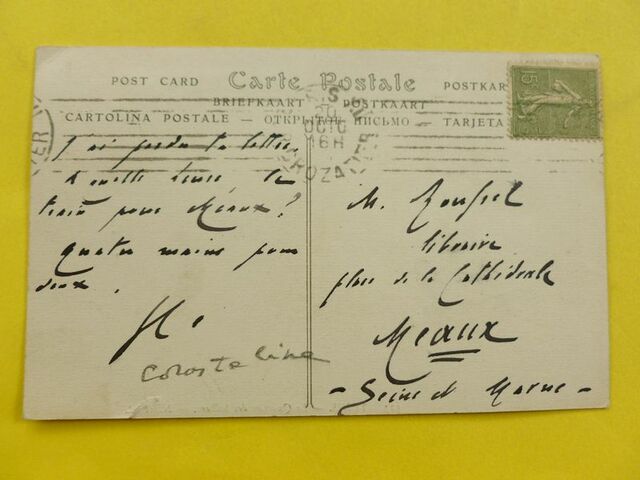 POST CARD Carte Postale POSTKAR
BRIEFKAART POSTKAART
CARTOLINA POSTALE — ОТКРЫТОЕ ПИСЬМО — TARJETA
15
J'ai perdu ta lettre.
A quelle heure le
train pour Meaux?
Quatre mains pour
deux.
Colas te line
M.
libraire
place de la Cathédrale
MEAUX
- Seine et Marne -